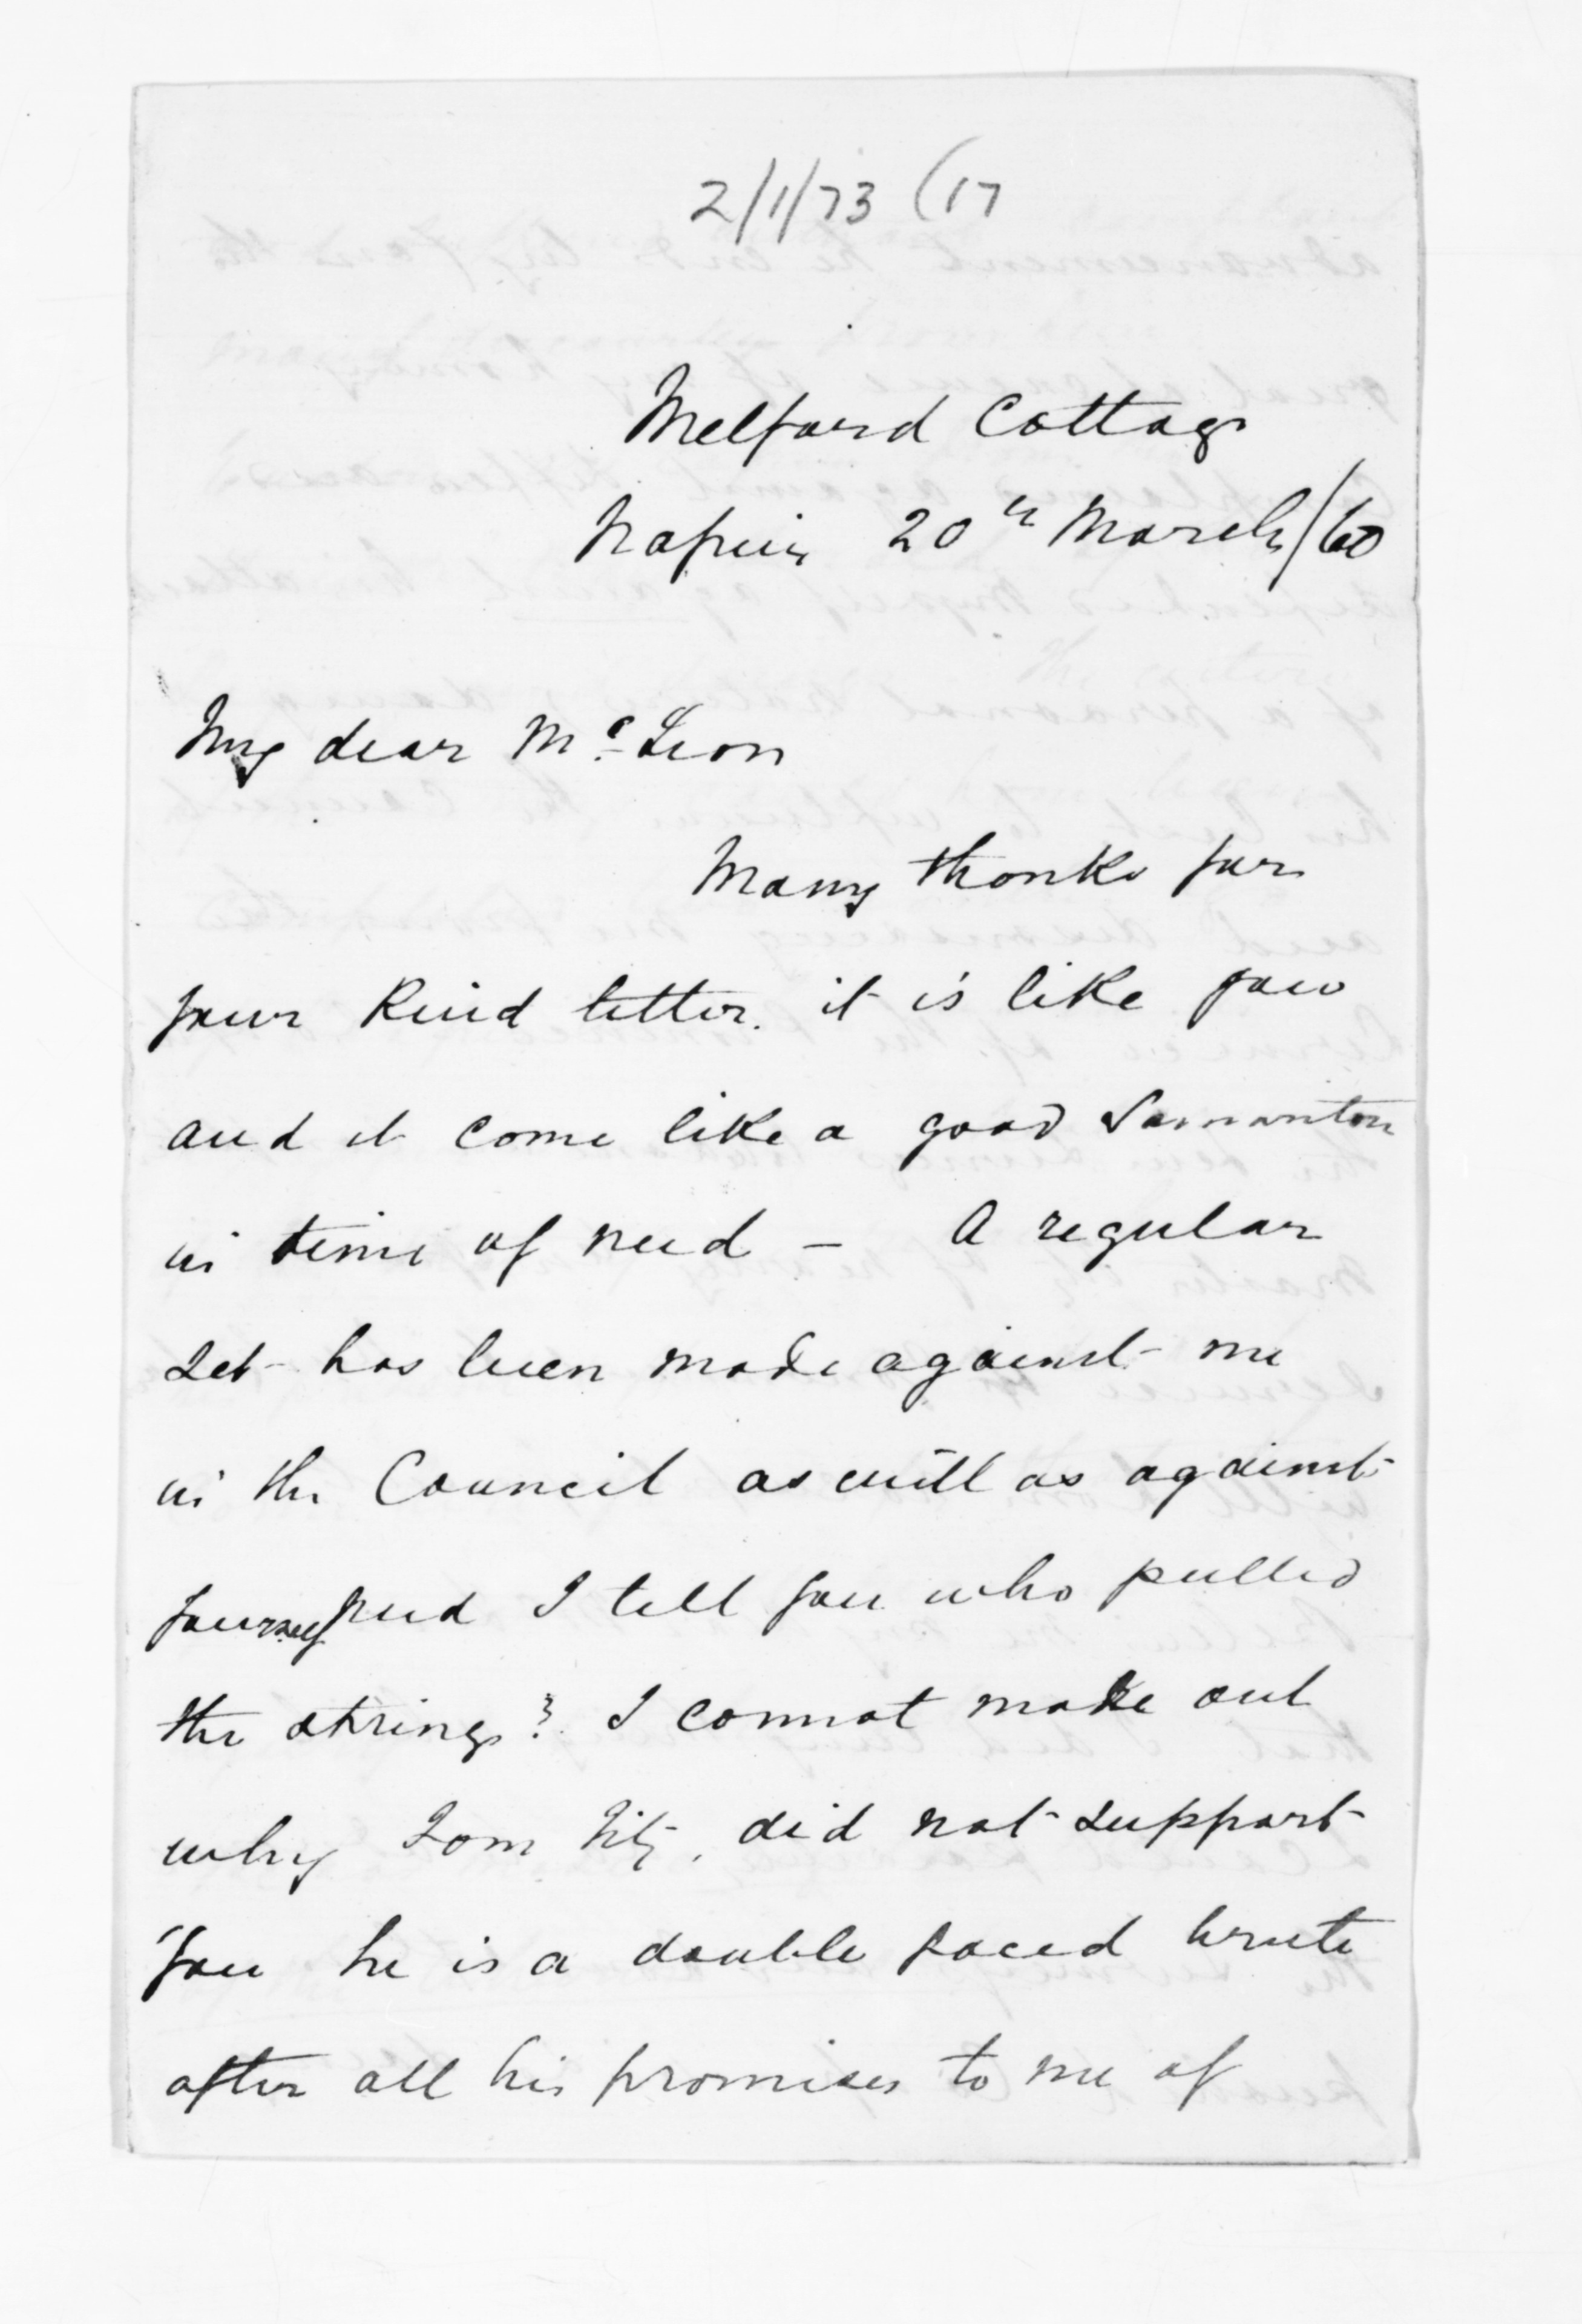 2/1/73 (17
Melford Cottage
Napier 20th March/60
My dear McLean
Many thanks for
your kind letter. it is like you
and it come like a good Samaritan
in time of need — A regular
set has been made against me
in the Council as well as against
yourself need I tell you who pulled
the strings? I cannot make out
why Tom Fitz, did not support
you he is a double faced brute
after all his promises to me of